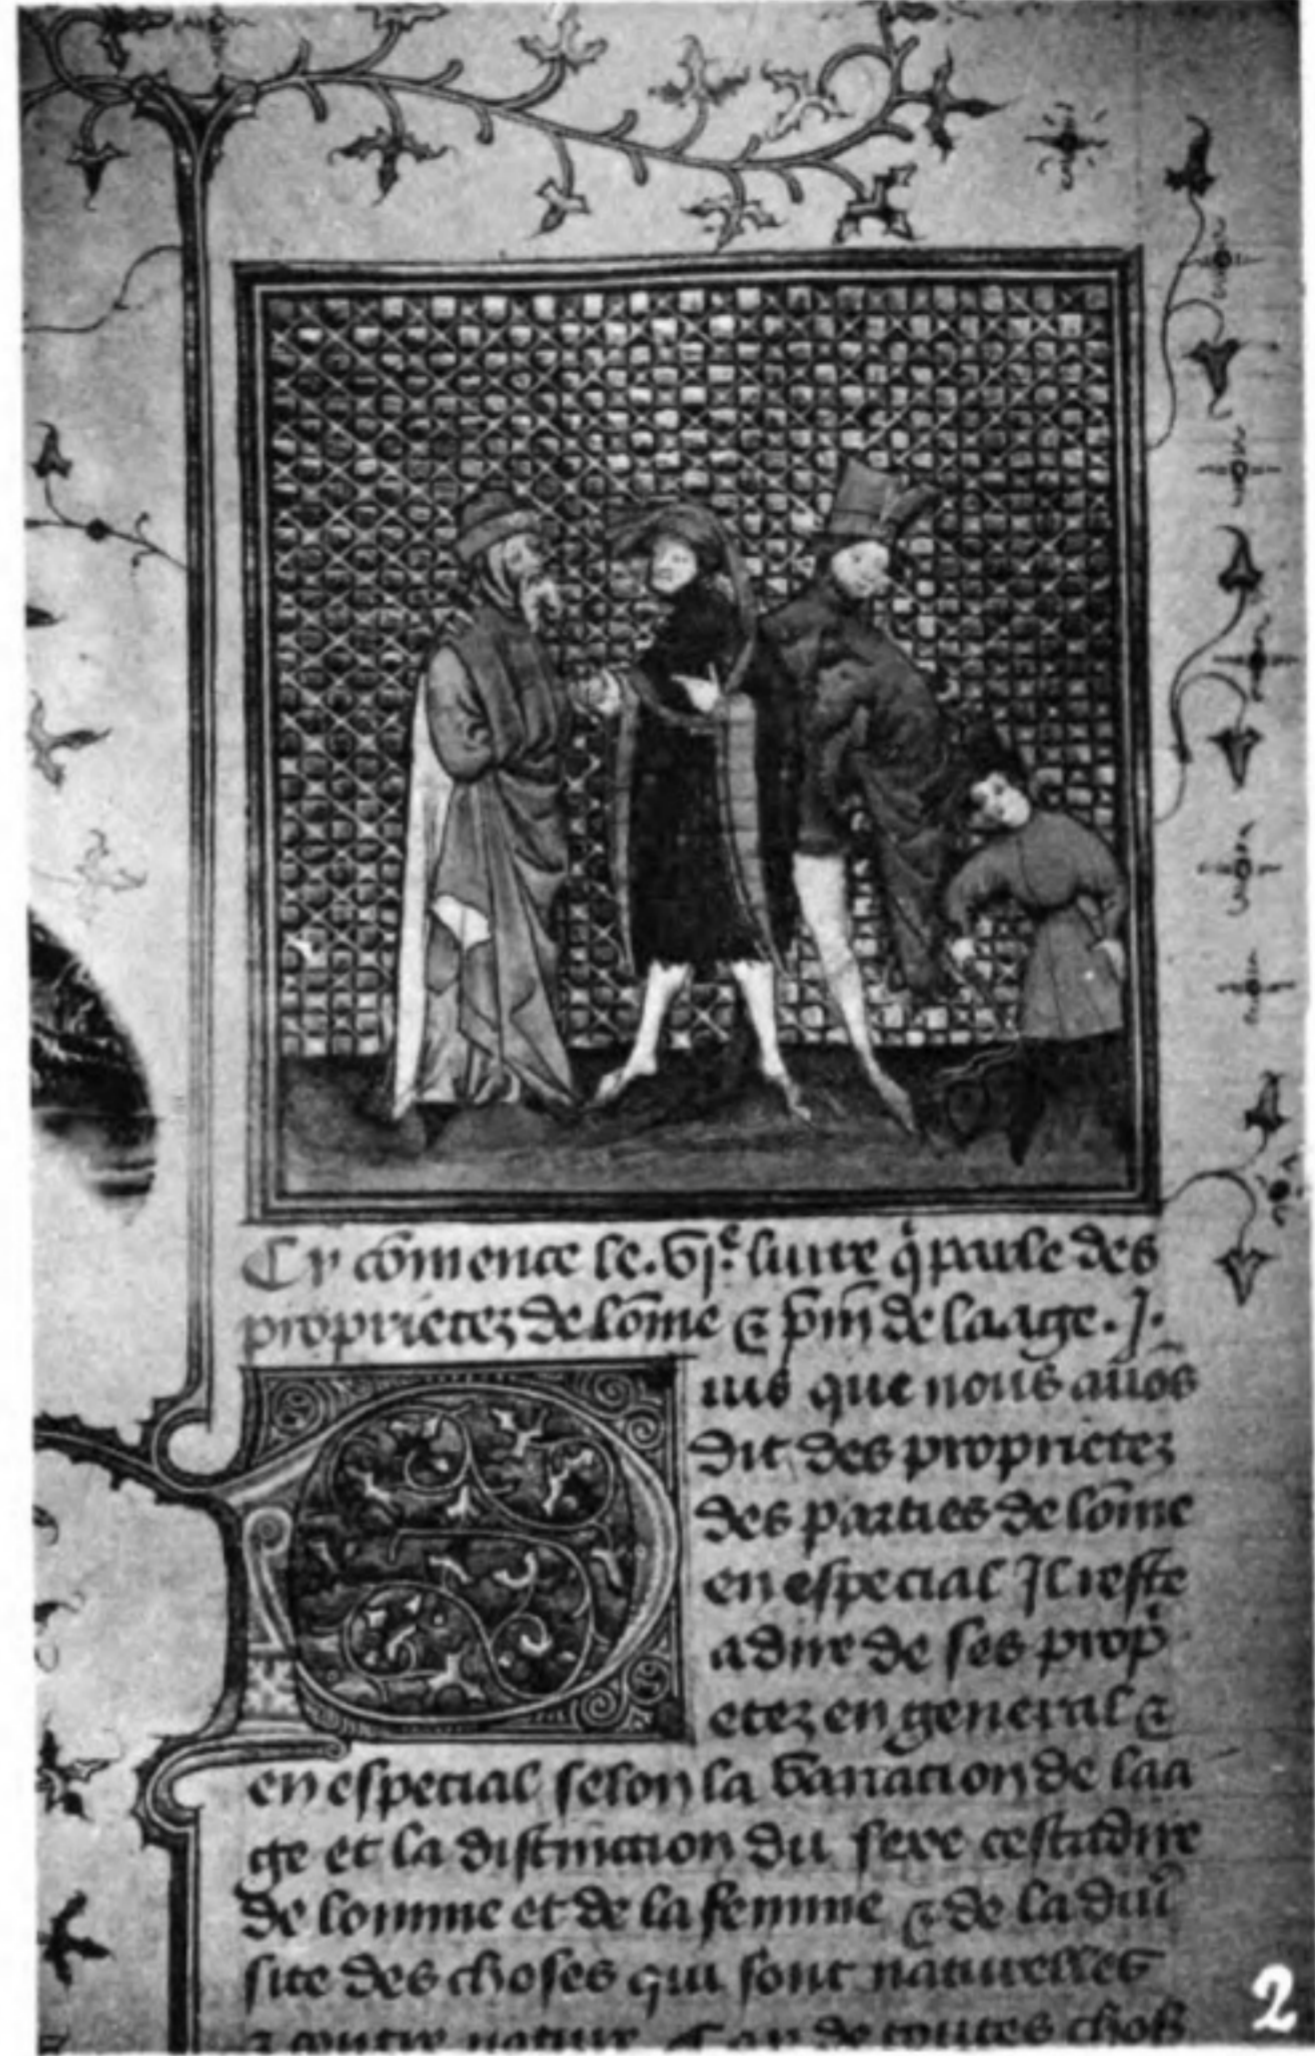 Cy cōmence le .vjᵉ. liure q̇ parle des
proprietez de lōme ⁊ p̄m̄ de laage . J .
uis que nous auōs
dit des proprietez
des parties de lōme
en especial Il reste
adire de ses prop̍
etez en general ⁊
en especial selon la variacion de laa
ge et la distinction du sexe cestadire
de lomme et de la femme ⁊ de la diu̍
site des choses qui sont naturelles
⁊ contre nature Car de toutes choses
2